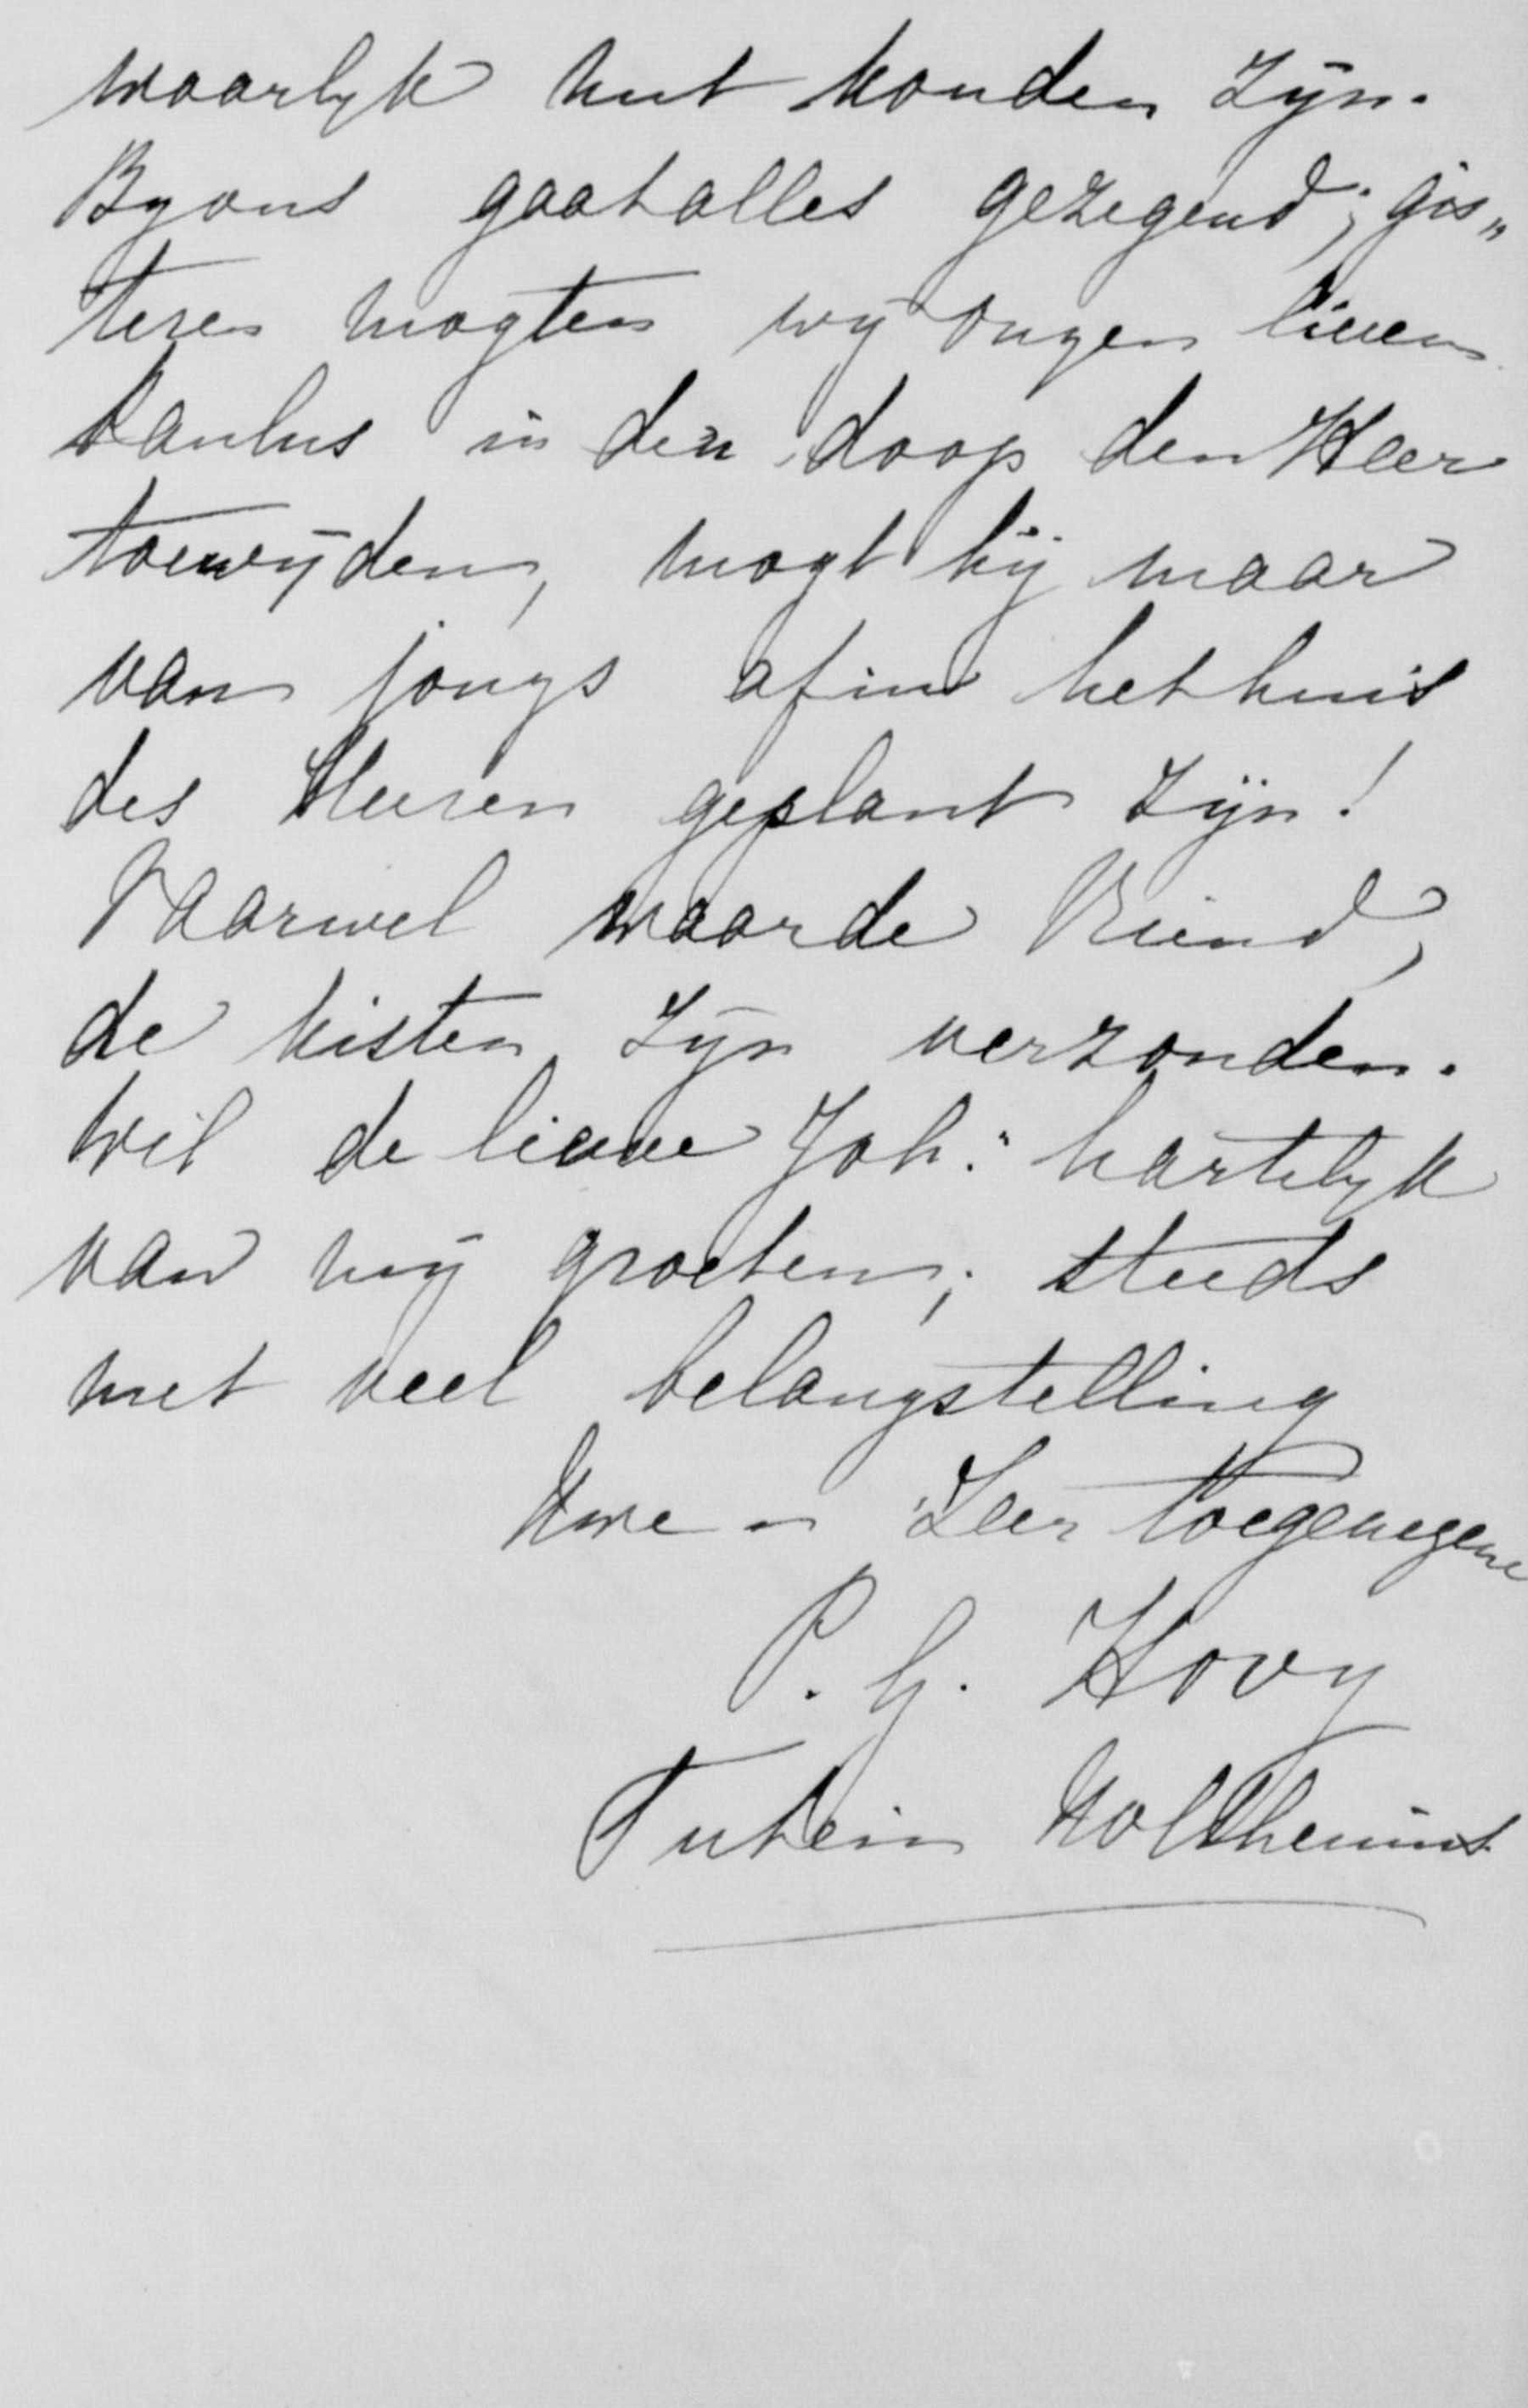 waarlyk nut konden zyn.
By ons gaat alles gezegend; gis„
teren mogten wy onzen lieven
Paulus in den doop den Heer
toewyden, mogt hij maar
van jongs af in het huis
des Heeren geplant zijn!
Vaarwel waarde Vriend,
de kisten zyn verzonden.
Wil de lieve Joh: hartelyk
van mij groeten; steeds
met veel belangstelling
Uwe Zeer toegenegene
P. G. Hovy
Tutein Nolthenius